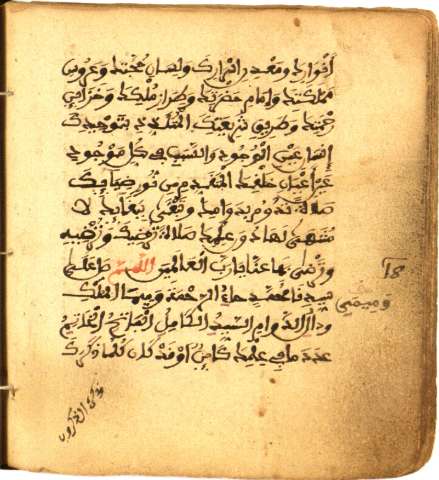 أنوارك ومعدن أسرارك ولسان حجتك وعروس
مملكتك وإمام حضرتك وطراز ملكك وخزائن
رحمتك وطريق شريعتك المتلذذ بتوحيدك
إنسان عين الوجود والسبب في كل موجود
عين أعيان خلقك المتقدم من نور ضيائك
صلاة تدوم بدوامك وتبقى ببقائك لا
منتهى لها دون علمك صلاة ترضيك وترضيه
وترضى بها عنا يا رب العالمين اللهم صل على
سيدنا محمد حاء الرحمة وميم الملك
وميمي
ودال الدوام السيد الكامل الفاتح الخاتم
عدد ما في علمك كائن أو قد كان كلما ذكرك